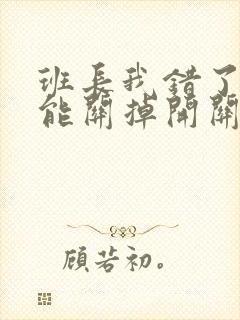 班长我错了
能關掉開關
顧若初。